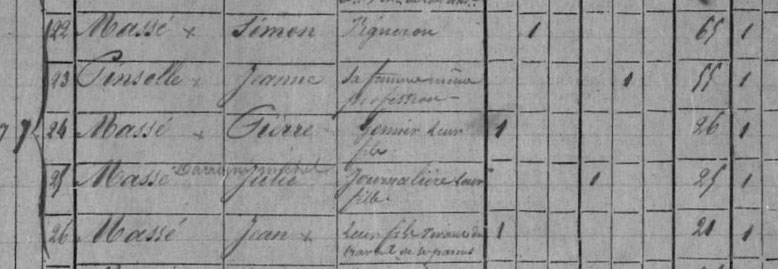 22 Massé x Simon Vigneron 1 65 1
23 Pinselle x Jeanne sa femme même 1 55 1
profession
7 7 24 Massé x Pierre Gendre leur 1 26 1
fils
25 Massé Julie Journalière leur 1 25 1
fille
26 Massé Jean x leur fils 1 21 1
travail de ses parents